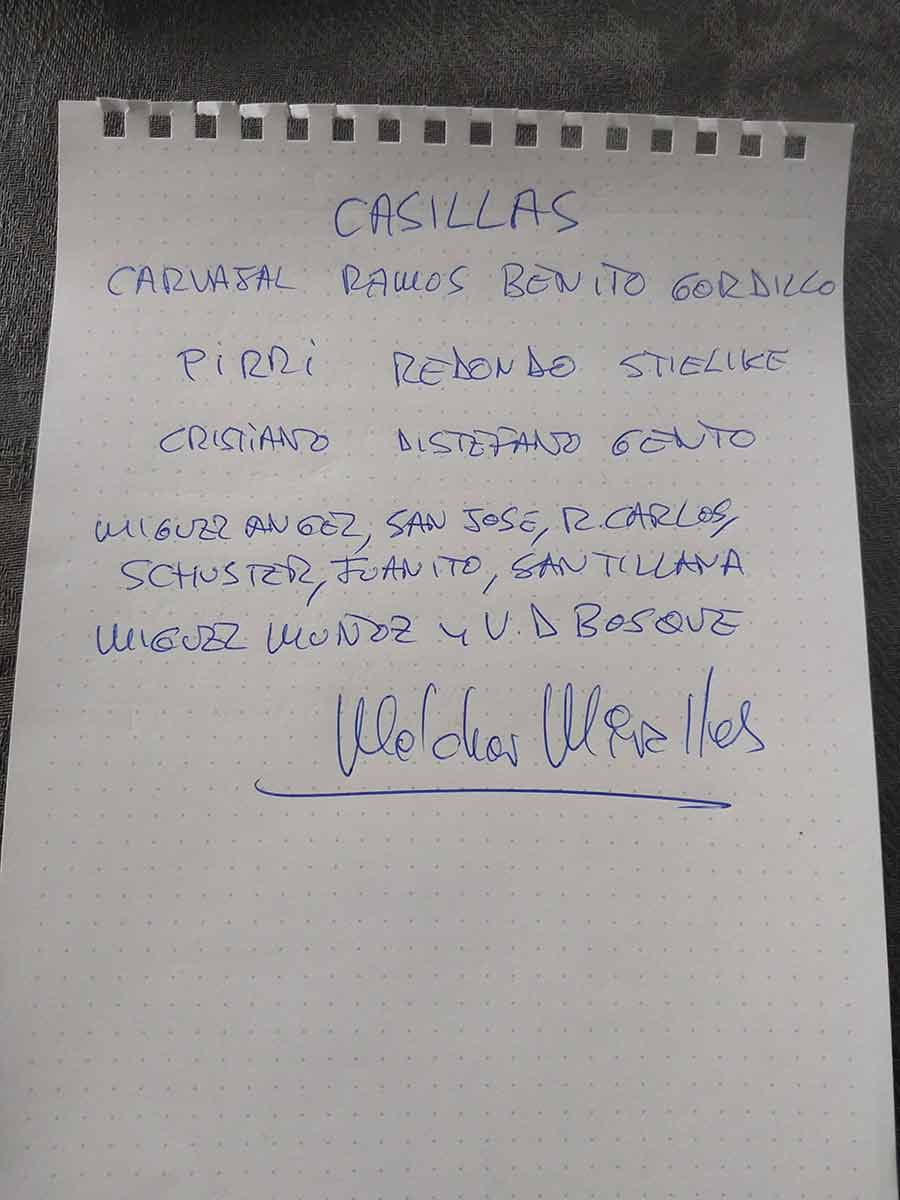 CASILLAS
CARVAJAL RAMOS BENITO GORDILLO
PIRRI REDONDO STIELIKE
CRISTIANO DISTEFANO GENTO
MIGUEL ANGEL, SAN JOSE, R. CARLOS,
SCHUSTER, JUANITO, SANTILLANA
MIGUEL MUÑOZ y V. D BOSQUE
Melchor Miralles